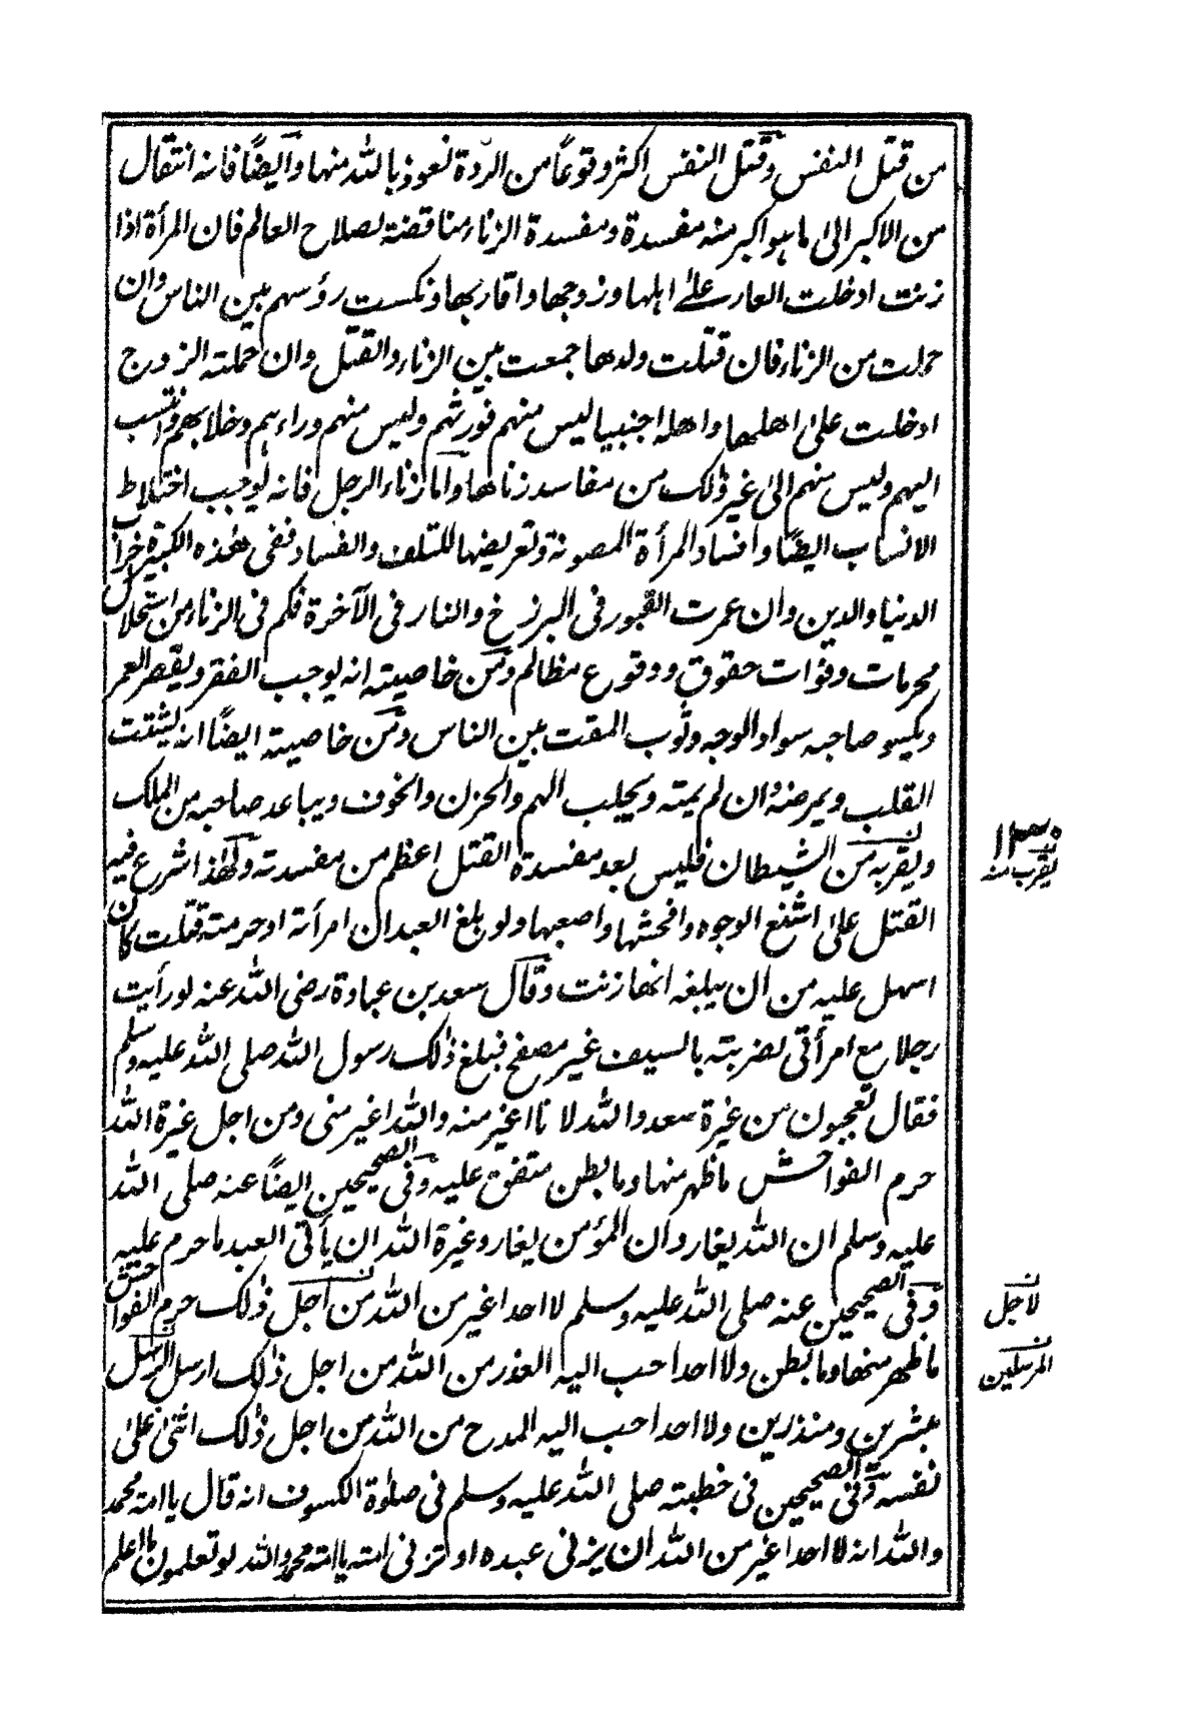 من قتل النفس وقتل النفس اكثر وقوعًا من الرّدة نعوذ بالله منها وايضًا فانه انتقال
من الاكبر الىٰ ما هو اكبر منه مفسدة ومفسدة الزناء مناقضة لصلاح العالم فان المرأة اذا
زنت ادخلت العار علىٰ اهلها وزوجها واقاربها ونكست رؤسهم بين الناس وان
حملت من الزناء فان قتلت ولدها جمعت بين الزناء والقتل وان حملته الزوج
ادخلت علىٰ اهلها واهله اجنبيا ليس منهم فورثهم وليس منهم وراءهم وخلا بهم وانتسب
اليهم وليس منهم الىٰ غير ذٰلك من مفاسد زناها واما زناء الرجل فانه يوجب اختلاط
الانساب ايضًا وافساد المرأة المصونة وتعريضها للتلف والفساد ففى هٰذه الكبيرة خراب
الدنيا والدين وان عمرت القبور فى البرزخ والنار فى الآخرة فكم فى الزناء من استحلال
محرمات وفوات حقوق ووقوع مظالم ومن خاصيته انه يوجب الفقر ويقصر العمر
ويكسو صاحبه سواد الوجه وثوب المقت بين الناس ومن خاصيته ايضًا انه يشتت
القلب ويمرضه وان لم يمته ويجلب الهم والحزن والخوف ويباعد صاحبه من الملك
ويقربه من الشيطان فليس بعد مفسدة القتل اعظم من مفسدته ولهٰذا شرع فيه
القتل علىٰ اشنع الوجوه وافحشها واصعبها ولو بلغ العبد ان امرأته او حرمته قتلت كان
اسهل عليه من ان يبلغه انها زنت وقال سعد بن عبادة رضى الله عنه لو رأيت
رجلا مع امرأتى لضربته بالسيف غير مصفح فبلغ ذٰلك رسول الله صلى الله عليه وسلم
فقال تعجبون من غيرة سعد والله لا نا اغير منه والله اغير منى ومن اجل غيرة الله
حرم الفواحش ما ظهر منها وما بطن متفق عليه وفى الصحيحين ايضًا عنه صلى الله
عليه وسلم ان الله يغار وان المؤمن يغار وغيرة الله ان يأتى العبد ما حرم عليه
وفى الصحيحين عنه صلى الله عليه وسلم لا احد اغير من الله من اجل ذٰلك حرم الفواحش
ما ظهر منها وما بطن ولا احد احب اليه العذر من الله من اجل ذٰلك ارسل الرسل
مبشرين ومنذرين ولا احد احب اليه المدح من الله من اجل ذٰلك اثنىٰ علىٰ
نفسه وفى الصحيحين فى خطبته صلى الله عليه وسلم فى صلوٰة الكسوف انه قال يا امة محمد
والله انه لا احد اغير من الله ان يزنى عبده او تزنى امته يا امة محمد والله لو تعلمون ما اعلم
يقرب منه
ن
لاجل
ن
المرسلين